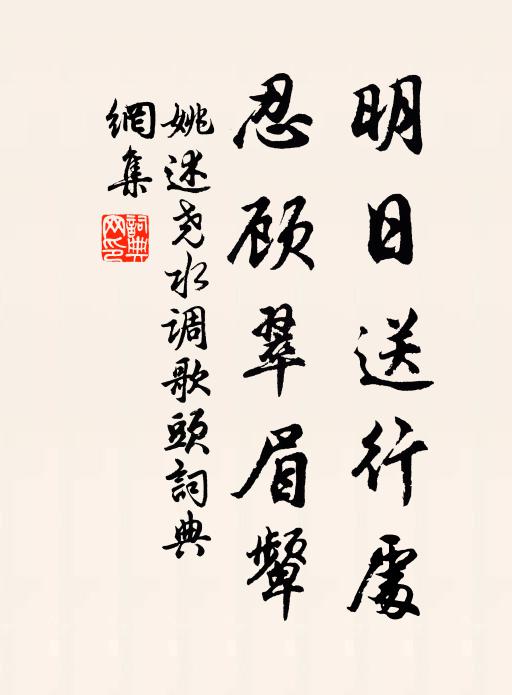 明日送行處
忍顾翠眉颦
姚述尧水调歌頭詞典
網集
詞典網印